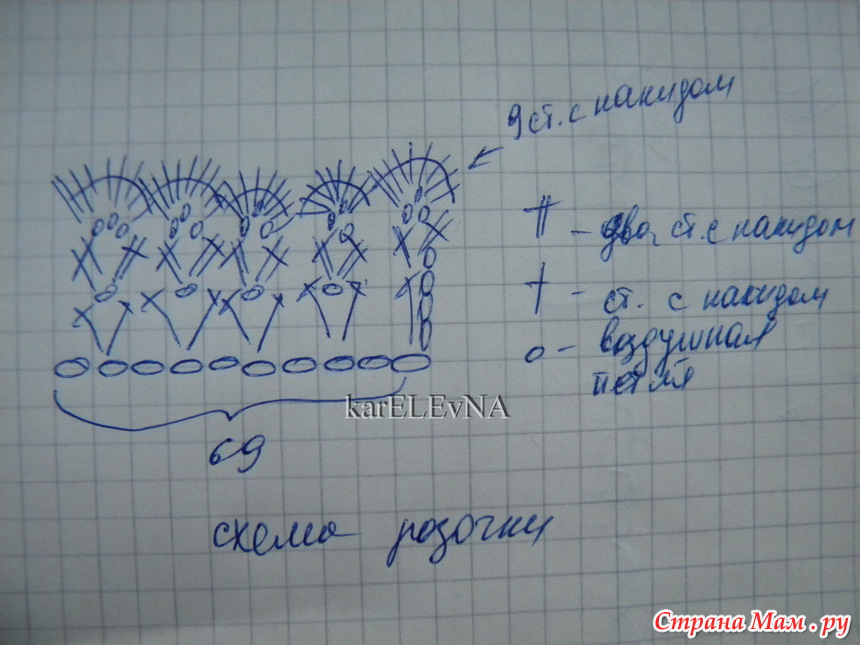 9 ст. с накидом
– два ст. с накидом
– ст. с накидом
о – воздушная
петля
karELEvNA
69
схема розочки
Страна Мам.ру